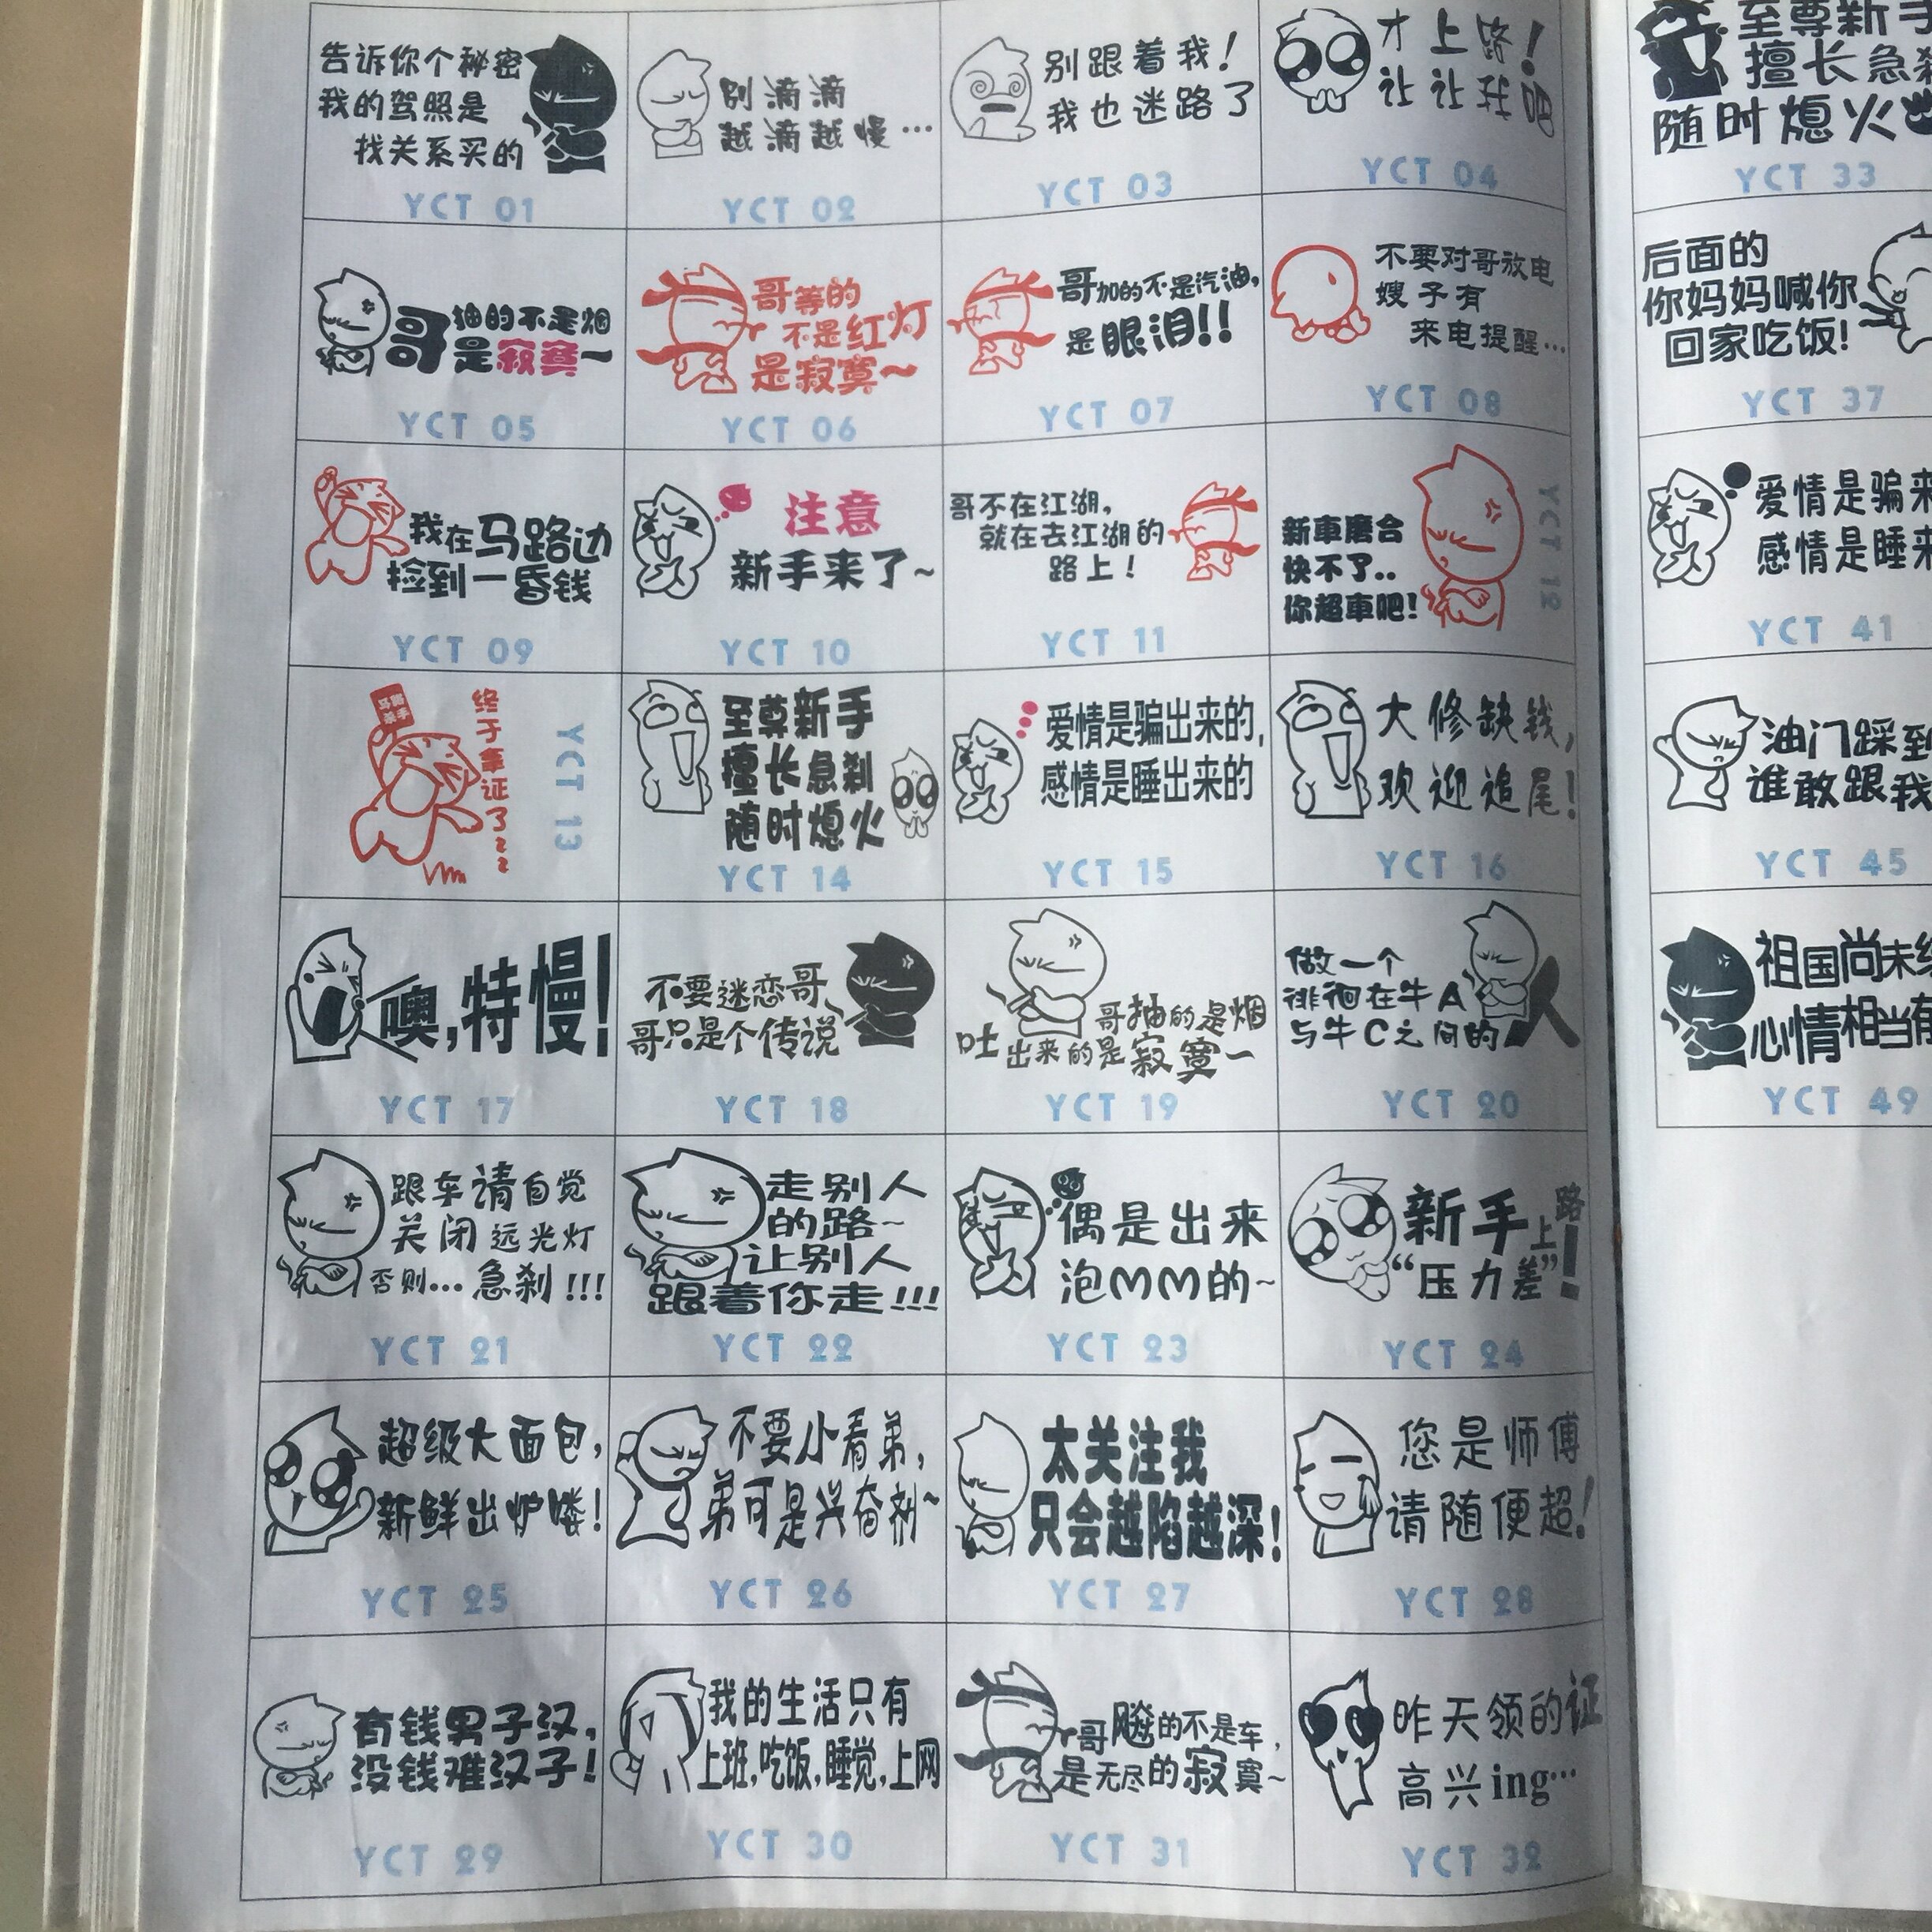 告诉你个秘密
我的驾照是
找关系买的
YCT 01
别滴滴
越滴越慢…
YCT 02
别跟着我!
我也迷路了
YCT 03
才上路!
让让我吧
YCT 04
哥抽的不是烟
是寂寞~
YCT 05
哥等的
不是红灯
是寂寞~
YCT 06
哥加的不是汽油,
是眼泪!!
YCT 07
不要对哥放电
嫂子有
来电提醒…
YCT 08
我在马路边
捡到一昏钱
YCT 09
注意
新手来了~
YCT 10
哥不在江湖,
就在去江湖的
路上!
YCT 11
新車磨合
快不了..
你超車吧!
YCT 12
马路
杀手
终于拿证了
YCT 13
至尊新手
擅长急刹
随时熄火
YCT 14
爱情是骗出来的,
感情是睡出来的
YCT 15
大修缺钱,
欢迎追尾!
YCT 16
噢,特慢!
YCT 17
不要迷恋哥
哥只是个传说
YCT 18
哥抽的是烟
吐出来的是寂寞~
YCT 19
做一个
徘徊在牛A
与牛C之间的人
YCT 20
跟车请自觉
关闭远光灯
否则…急刹!!!
YCT 21
走别人
的路~
让别人
跟着你走!!!
YCT 22
偶是出来
泡MM的~
YCT 23
新手上路!
“压力差”
YCT 24
超级大面包,
新鲜出炉喽!
YCT 25
不要小看弟,
弟可是兴奋剂~
YCT 26
太关注我
只会越陷越深!
YCT 27
您是师傅
请随便超!
YCT 28
有钱男子汉,
没钱难汉子!
YCT 29
我的生活只有
上班,吃饭,睡觉,上网
YCT 30
哥飚的不是车,
是无尽的寂寞~
YCT 31
昨天领的证
高兴ing…
YCT 32
至尊新
擅长急
随时熄火
YCT 33
后面的
你妈妈喊你
回家吃饭!
YCT 37
爱情是骗
感情是睡
YCT 41
油门踩到
谁敢跟我
YCT 45
祖国尚未
心情相当
YCT 49